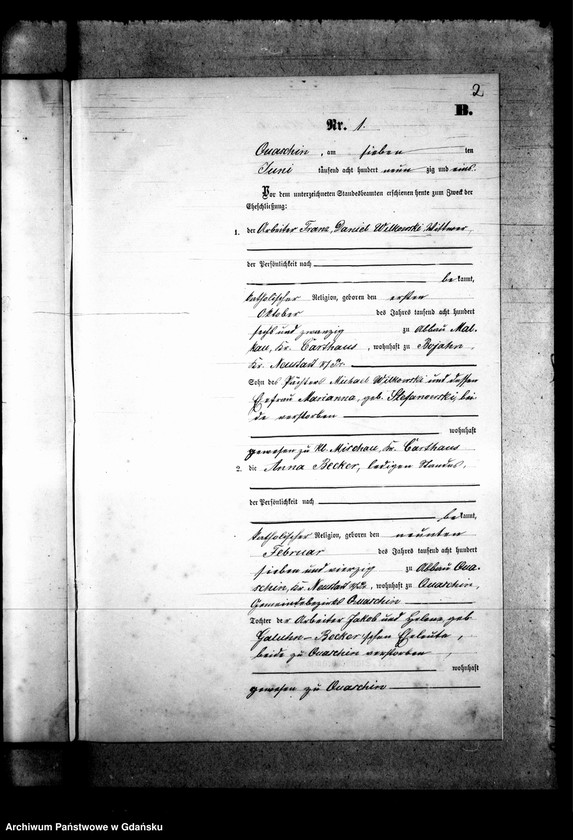 2
B.
Nr. 1.
Quaschin, am sieben ten
Juni tausend acht hundert neun zig und eins.
Vor dem unterzeichneten Standesbeamten erschienen heute zum Zweck der
Eheschließung:
1. der Arbeiter Franz, Daniel Wilkowski, Wittwer
der Persönlichkeit nach
be kannt,
katholischer Religion, geboren den ersten
Oktober des Jahres tausend acht hundert
sechs und zwanzig zu Abbau Mal-
kau, Kr. Carthaus, wohnhaft zu Bojahn,
Kr. Neustadt W/Pr.
Sohn des Pächters Michael Wilkowski und dessen
Ehefrau Marianna, geb. Stefanowski, bei-
de verstorben
wohnhaft
gewesen zu Kl. Mischau, Kr. Carthaus
2. die Anna Becker, ledigen Standes,
der Persönlichkeit nach
be kannt,
katholischer Religion, geboren den neunten
Februar des Jahres tausend acht hundert
sieben und vierzig zu Abbau Qua-
schin, Kr. Neustadt W/Pr., wohnhaft zu Quaschin,
Gemeindebezirks Quaschin
Tochter der Arbeiter Jakob und Helena, geb.
Becker'schen Eheleute,
beide zu Quaschin verstorben
wohnhaft
gewesen zu Quaschin
Archiwum Państwowe w Gdańsku